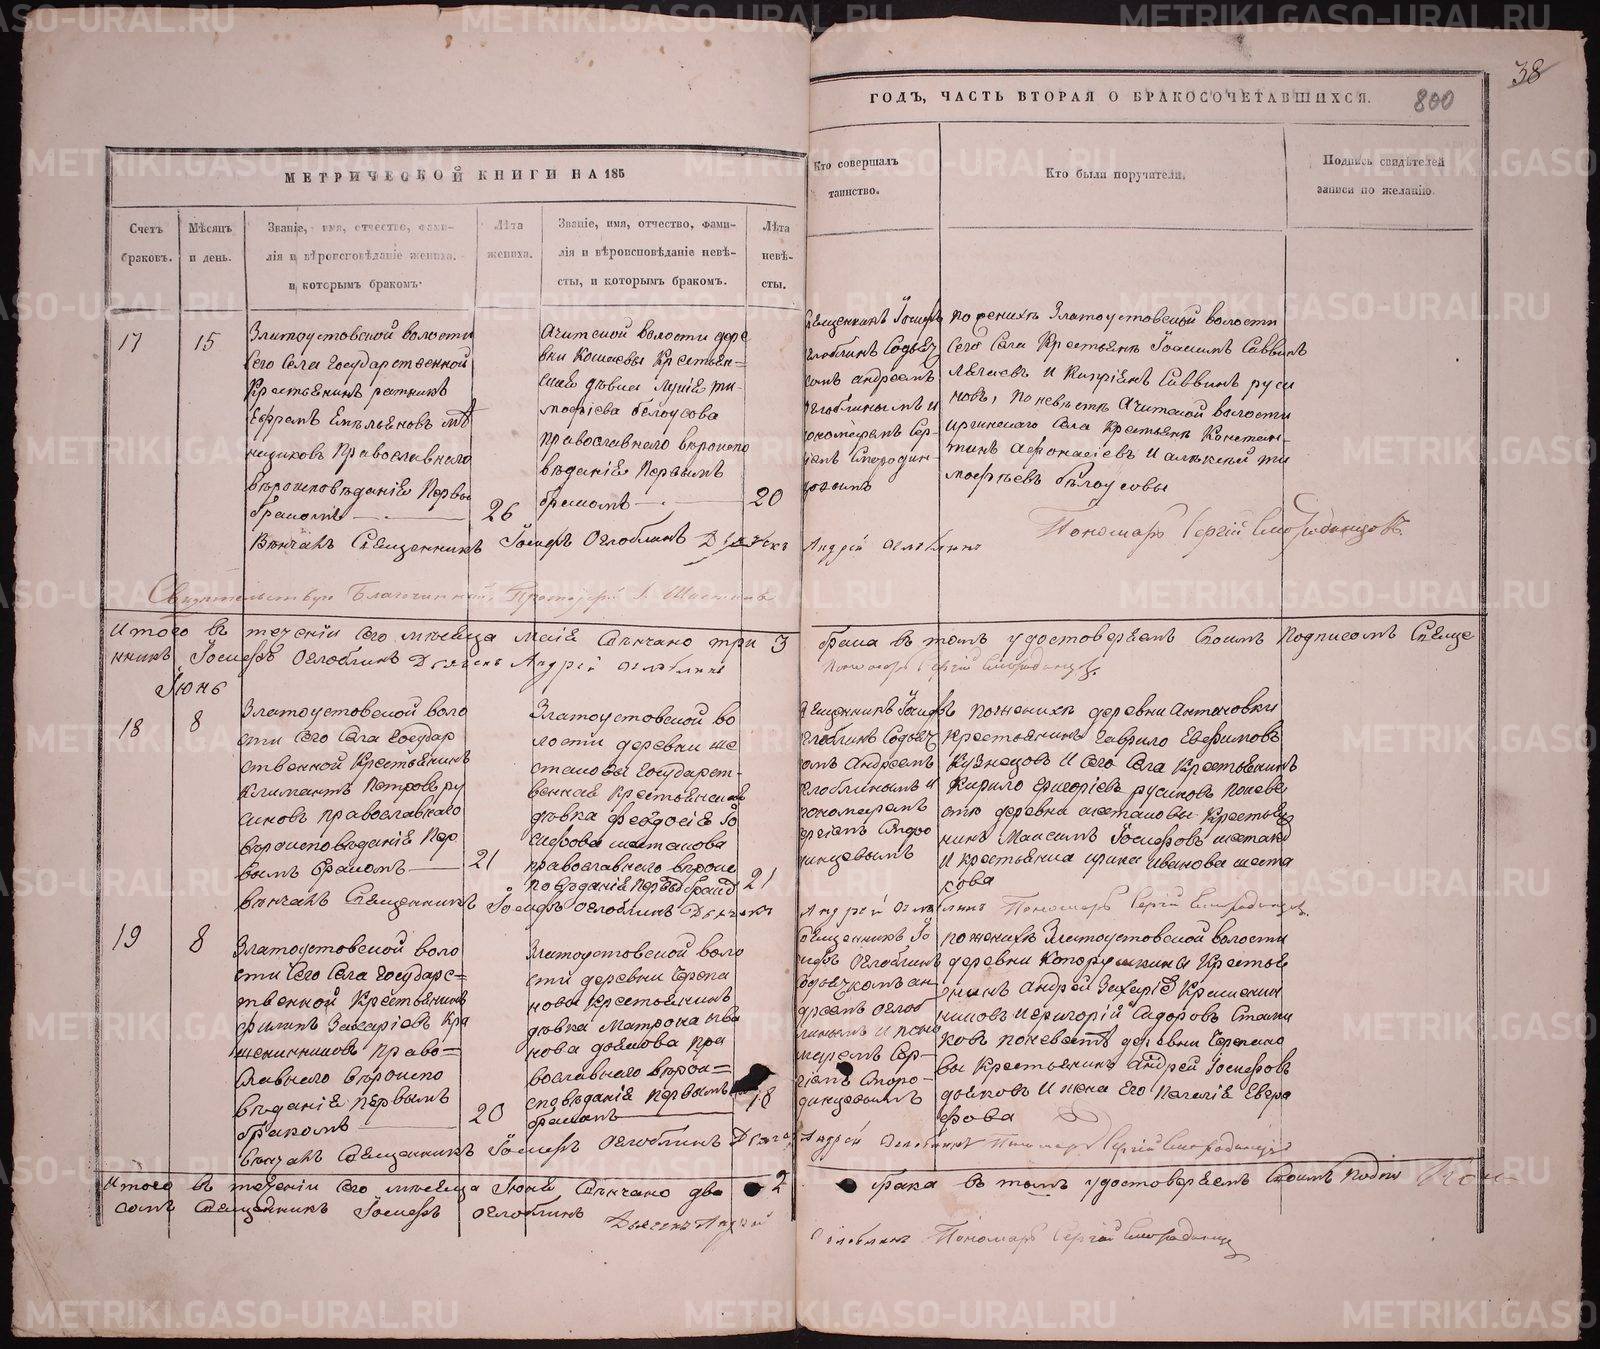 38
МЕТРИЧЕСКОЙ КНИГИ НА 185
ГОДЪ, ЧАСТЬ ВТОРАЯ О БРАКОСОЧЕТАВШИХСЯ.
800
Счетъ браковъ.
Мѣсяцъ и день.
Званіе, имя, отчество, фами-
лія и вѣроисповѣданіе жениха,
и которымъ бракомъ.
Лѣта
жениха.
Званіе, имя, отчество, фами-
лія и вѣроисповѣданіе невѣ-
сты, и которымъ бракомъ.
Лѣта
невѣ-
сты.
Кто совершалъ
таинство.
Кто были поручители.
Подпись свидѣтелей
записи по желанію.
17
15
Златоустовской волости
сего села государственной
крестьянинъ ратникъ
Ефремъ Емельяновъ
православнаго
вѣроисповѣданія первы
бракомъ
26
Ачитской волости дере
вни крестьян=
ская дѣвка ти
мофѣева белоусова
православнаго вѣроиспо
вѣданія первымъ
бракомъ
20
священникъ Іосифъ
Оглоблинъ с дьяч
комъ андреемъ
Оглоблинымъ и
пономаремъ Сер-
гіемъ Смородин-
цовымъ
по женихѣ Златоустовской волости
сего села крестьяне Савинъ
и руси
новъ, по невѣстѣ Ачитской волости
села крестьяне Констан-
тинъ Афонасіевъ и алексей ти
мофѣевъ бѣлоусовы
Вѣнчалъ священникъ Іосифъ Оглоблинъ Дьячекъ
Андрей Оглоблинъ
Пономарь Сергій Смородинцовъ.
Свидѣтельствую Благочинный Протоіерей
Итого въ теченіи сего мѣсяца маія вѣнчано три 3 брака въ томъ удостоверяемъ своимъ подписомъ свяще
нникъ Іосифъ Оглоблинъ Дьячекъ Андрей Оглоблинъ
Пономарь Сергій Смородинцовъ.
Іюнь
18
8
Златоустовской воло
сти сего села государ
ственной крестьянинъ
Климантъ Петровъ ру
синовъ православнаго
вѣроисповѣданія пер
вымъ бракомъ
21
Златоустовской во
лости деревни ше
стаковы государст-
венная крестьянская
дѣвка феодосія Іо
сифова шестакова
православнаго вѣроис
повѣданія первы бракомъ
21
священникъ Іосифъ
Оглоблинъ с дьяч
комъ андреемъ
Оглоблинымъ и
пономаремъ
Сергіемъ Сморо
динцовымъ
по женихѣ деревни Антоновки
крестьянинъ гаврило Евфимовъ
кузнецовъ и сего села крестьянинъ
Кирило григоріевъ русиновъ по неве
стѣ деревни шестаковы крестья
нинъ Максимъ Іосифовъ шестаков
и крестьянка ирина иванова шеста
кова
вѣнчалъ священникъ Іосифъ Оглоблинъ Дьячекъ
Андрей Оглоблинъ Пономарь Сергій Смородинцовъ.
19
8
Златоустовской воло
сти сего села государс=
твенной крестьянинъ
филипъ Захаріевъ Кра
шенинниковъ право=
славнаго вѣроиспо
вѣданія первымъ
бракомъ
20
Златоустовской воло
сти деревни Черепа
новы крестьянинъ
дѣвка Матрона ива
нова дьякова пра
вославнаго вѣрои=
сповѣданія первымъ
бракомъ
18
священникъ Іо
сифъ Оглоблинъ
с дьячкомъ ан-
дреемъ Оглоб
линымъ и поно
маремъ Сер-
гіемъ Сморо-
динцовымъ
по женихѣ Златоустовской волости
деревни Копорушкины крестья
нинъ андрей Захаріе Крашенин
никовъ и григорій Сидоровъ
по невестѣ деревни Черепано
вы крестьянинъ андрей Іосифовъ
дьяковъ и жена его Пелагія Евгра
фова
вѣнчалъ священникъ Іосифъ Оглоблинъ
Андрей Оглоблинъ Пономарь Сергій Смородинцовъ
Итого въ теченіи сего мѣсяца Іюня вѣнчано два 2 брака въ томъ удостоверяемъ своимъ
священникъ Іосифъ Оглоблинъ Дьячекъ Андрей
Оглоблинъ Пономарь Сергій Смородинцовъ
METRIKI.GASO-URAL.RU